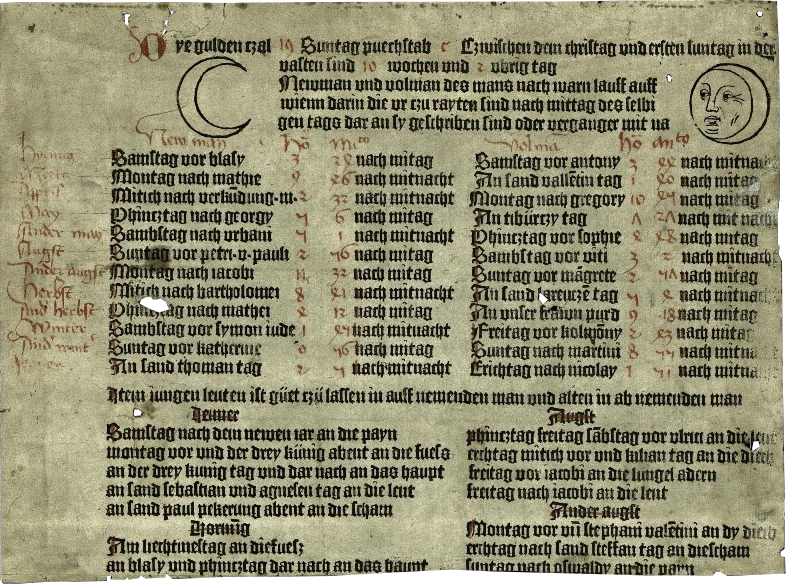 Dye gulden czal 19 Suntag puechstab c Czwischen dem christag und ersten suntag in der
vasten sind 10 wochen und 2 ubrig tag
Newman und volman des mans nach warn lauff auff
wienn darin die vr czu rayten sind nach mittag des selbi
gen tags dar an sy geschriben sind oder vergangner mit na
New man
Samstag vor blasy 3 nach mitag
Montag nach mathie 9 26 nach mitnacht
Mitich nach verkundung m 2 32 nach mitnacht
Phincztag nach georgy 7 6 nach mitag
Sambstag nach vrbani 7 1 nach mitnacht
Suntag vor petri v pauli 2 nach mitag
Montag nach iacobi 11 32 nach mitag
Mitich nach bartholomei 8 21 nach mitnacht
Phincztag nach mathei 8 12 nach mitag
Sambstag vor symon iude 1 nach mitnacht
Suntag vor katherine 0 nach mitag
An sand thoman tag 2 7 nach mitnacht
Samstag vor antony 3 nach mitnacht
An sand vallentin tag 1 20 nach mitag
Montag nach gregory 10 nach mitag
An tiburczy tag nach mit nacht
Phincztag vor sophie 8 28 nach mitag
Sambstag vor viti 3 2 nach mitnacht
Suntag vor margrete 2 nach mitag
An sand kreucze tag 7 8 nach mitnacht
An unser frawn purd 9 18 nach mitag
Freitag vor kolmony 2 23 nach mitag
Suntag nach martini 8 nach mitna
Erichtag nach nicolay 1 nach mitna
May
Ander may
Augst
Ander augst
Herbst
And herbst
Winter
And wint
Item iungen leuten ist guet czu lassen in auff nemenden man und alten in ab nemenden man
Jenner
Samstag nach dem newen iar an die payn
montag vor und der drey kunig abent an die fuess
an der drey kunig tag und dar nach an das haupt
an sand sebastian und agnesen tag an die lent
an sand paul pekerung abent an die scham
Hornung
Am liechtmestag an die fuesz
an blasy und phincztag dar nach an das haupt
Augst
phincztag freitag sambstag vor vlrici an die lent
erchtag mitich vor und kilian tag an die diech
freitag vor iacobi an die lungel adern
freitag nach iacobi an die lent
Ander augst
Montag vor vn stephani valentini an dy diech
erchtag nach sand steffan tag an die scham
suntag nach oswaldy an die payn